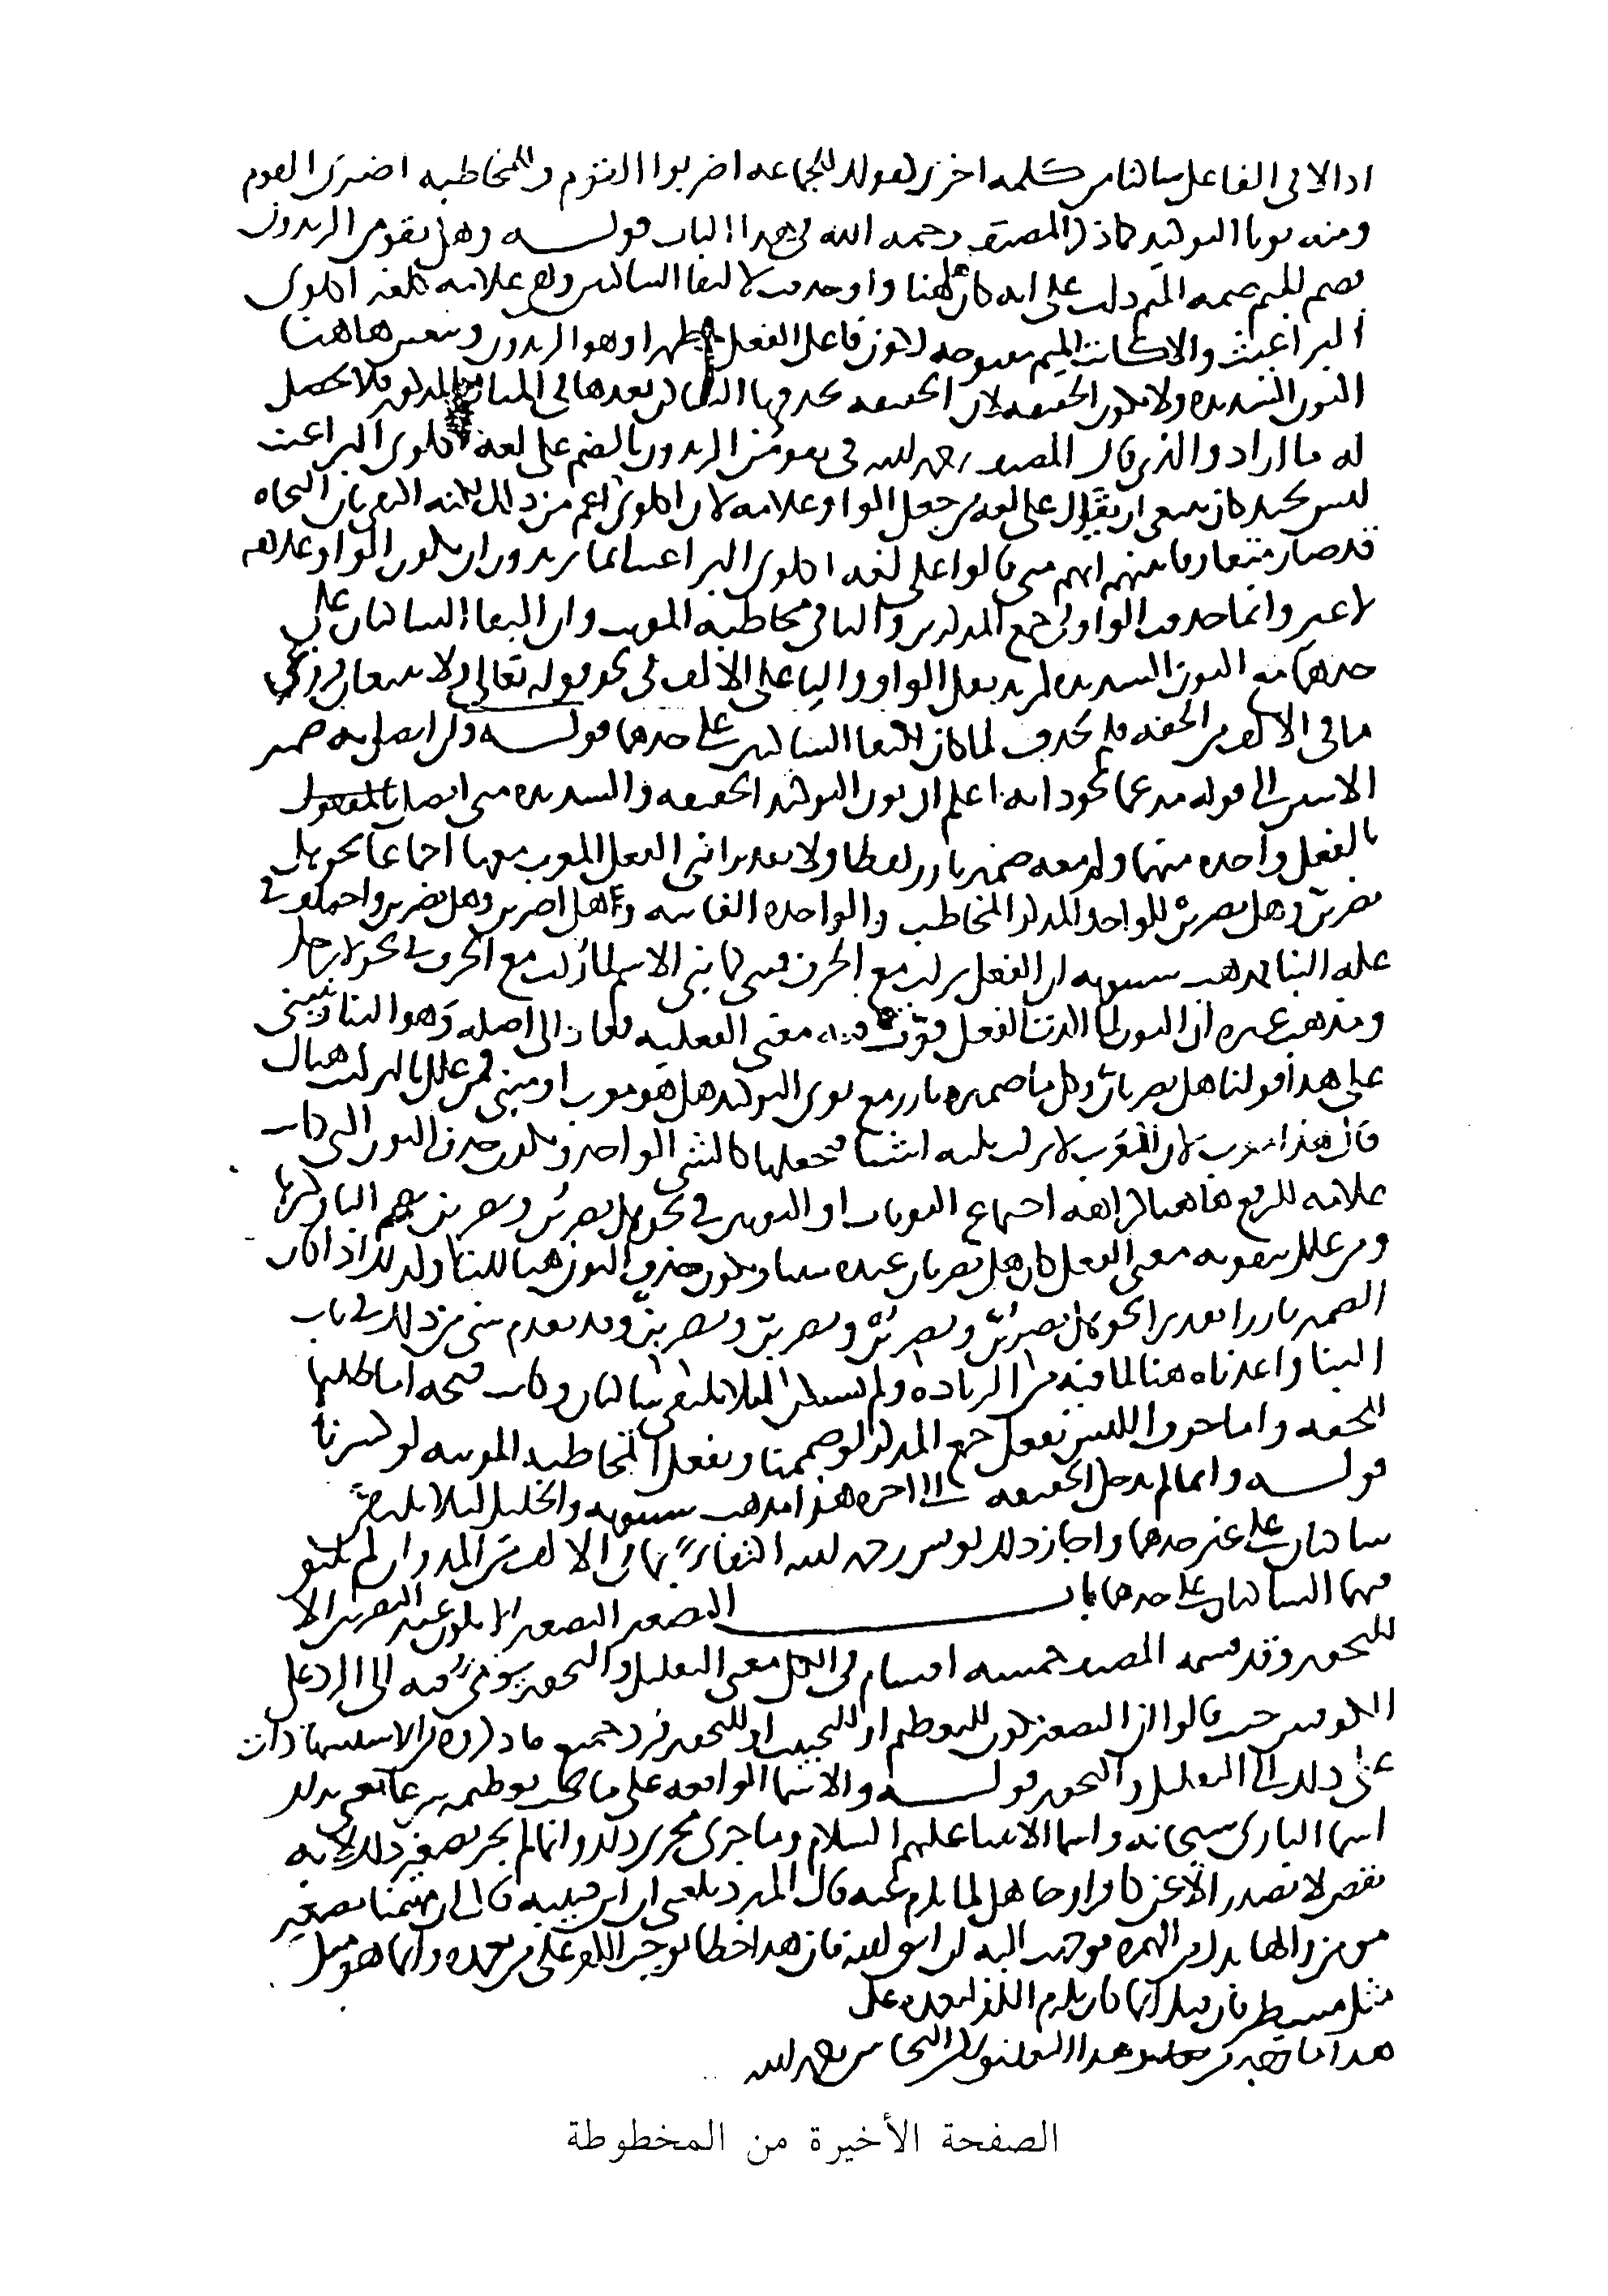 اذا لاقى الفاعل ساكنا من كلمه اخرى كقولك للجماعه اضربوا القوم وللمخاطبه اضربى القوم
ومنه نونا التوكيد كما ذكر المصنف رحمه الله فى هذا الباب قوله وهل يقومن الزيدون
بضم الميم ضمه الميم دلت على انه كان هنا واو حذفت لالتقا الساكنين وهى علامه كلغه اكلونى
البراغيث والا كانت الميم مفتوحه لانون فاعل الفعل مظهرا وهو الزيدون وتتعين هاهنا
النون الشديده ولا تكون الخفيفه لان الخفيفه يحذفها الساكن بعدها فى المثال المذكور فلا يحصل
له ما اراد والذى قال المصنف رحمه الله فى يقومن الزيدون بالضم على لغه اكلونى البراغيث
ليس بجيد كان ينبغى ان يقال على لغه من جعل الواو علامه لان اكلونى اعم من ذلك لكنه النحاه
قد صار متعارفا منهم انهم متى قالوا على لغه اكلونى البراغيث انما يريدون ان تكون الواو علامه
لا غير وانما حذفت الواو فى جمع المذكرين واليا فى مخاطبه المونث وان التقا الساكنان على
حدهما مع النون الشديده لمزيد ثقل الواو واليا على الالف فى نحو قوله تعالى ولا تتبعان
ما فى الالف من الخفه فلم تحذف لما كان التقا الساكنين على حدهما قوله وان اتصل به ضمير
الاثنين الى قوله مدغما نحو دابه اعلم ان نون التوكيد الخفيفه والشديده متى اتصل
بالفعل واحده منهما ولم معه ضمير بارز لفظا ولا تقديرا بنى الفعل المعرب معها اجماعا نحو هل
تضربن وهل تضربن للواحد المذكر المخاطب والواحده الغايبه وهل اضربن وهل نضربن واختلفوا فى
عله البنا فمذهب سيبويه ان الفعل تركب مع الحرف فبنى كما بنى الاسم لما ركب مع الحرف فى نحو لا رجل
ومذهب غيره ان النون لما اكدت الفعل قوت فيه معنى الفعليه فعاد الى اصله وهو البنا فيبنى
على هذا قولنا هل تضربان وكل ما ضميره بارز مع نونى التوكيد هل هو معرب او مبنى فمن علل بالتركيب هناك
قال هذا معرب لان العرب لا تركب ثلثه اشيا فتجعلها كالشى الواحد ويكون حذف النون التى كانت
علامه للرفع هاهنا كراهه اجتماع النونات او النونين فى نحو هل تضربن وتضربن بضم البا وكسرها
ومن علل بتقويه معنى الفعل كان هل تضربان عنده مبنيا ويكون حذف النون هنا للبنا وكذلك اذا كان
الضمير بارزا تقديرا نحو هل تضربن وتضربن وقد تقدم شى من ذلك فى باب
البنا واعدناه هنا لما فيه من الزياده ولم تسكن اللام لئلا يلتقى ساكنان وكانت فتحه اما طلبا
للخفه واما خوف اللبس بفعل جمع المذكر لو ضممنا وبفعل المخاطبه المونثه لو كسرنا
قوله وانما لم تدخل الخفيفه الى اخره هذا مذهب سيبويه والخليل لئلا يلتقى
ساكنان على غير حدهما واجاز ذلك يونس رحمه الله اكتفاء بما فى الالف من المد وان لم يلتق
فيها الساكنان على حدهما باب التصغير التصغير لا يكون عند البصريين الا
للتحقير وقد قسمه المصنف خمسه اقسام فى الكل معنى التقليل والتحقير يومئ فيه الى الرد على
الكوفيين حيث قالوا ان التصغير يكون للتعظيم او للتحبيب او للتحقير فرد جميع ما ذكروه من الاستشهادات
على ذلك الى التقليل والتحقير قوله والاسما الواقعه على ما يجب تعظيمه شرعا نعنى بذلك
اسما البارى سبحانه واسما الانبيا عليهم السلام وما جرى مجرى ذلك وانما لم يجز تصغير ذلك لانه
نقص لا يصدر الا عن كافر او جاهل لما يلزم عنه قال المبرد بلغنى ان ابن قتيبه قال ان مهيمنا تصغير
مومن والها بدل من الهمزه فوجهت اليه ان اتق الله فان هذا خطا يوجب الكفر على من تعمده وانما هو مثل
مثل مسيطر فان قيل انما كان يلزم الكفر لمعتقده على
هذا ما وجد من تعليق هذا التعليق لابن النحاس رحمه الله
الصفحة الأخيرة من المخطوطة